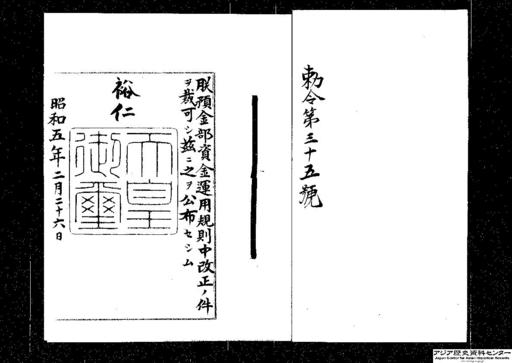 勅令第三十五號
朕預金部資金運用規則中改正ノ件
ヲ裁可シ茲ニ之ヲ公布セシム
裕仁
天皇
御璽
昭和五年二月二十六日
アジア歴史資料センター
Japan Center for Asian Historical Records